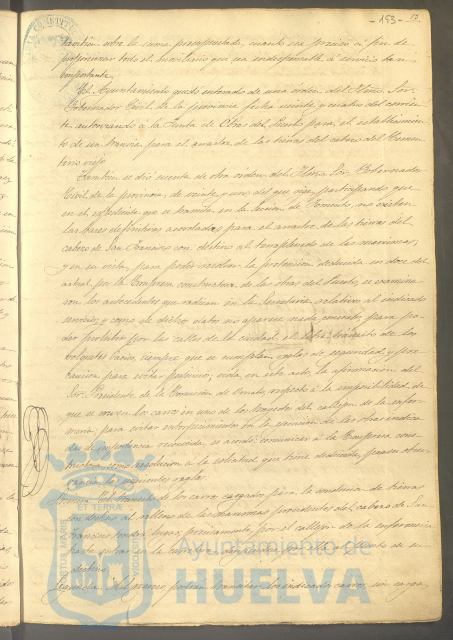 -153-
también sobre la suma presupuestada, cuanto sea preciso á fin de
proporcionar todo el mobiliario que sea indispensable á servicio tan
importante.
El Ayuntamiento quedó enterado de una órden del Iltmo. Sor.
Gobernador Civil de la provincia fecha veinte y cuatro del corrien-
te autorizando á la Junta de Obras del Puerto para el establecimien-
to de un tranvía para el arrastre de las tierras del cabezo del Cemen-
terio viejo.
También se dió cuenta de otra orden del Iltmo. Sor. Gobernador
Civil de la provincia, de veinte y uno del que rige, participando que
en el expediente que se tramita en la Sección de Fomento, no existen
las bases definitivas acordadas para el arrastre de las tierras del
cabezo de San Francisco con destino al terraplenado de las marismas,
y en su vista, para poder resolver la pretensión deducida en doce del
actual por la Empresa constructora de las obras del Puerto, se examina-
ron los antecedentes que radican en la Secretaría relativos al indicado
servicio, y como de dichos datos no aparece nada concreto para po-
der prohibir por las calles de la ciudad el libre tránsito de los
volquetes vacíos, siempre que se cumplan reglas de seguridad y pre-
caución para evitar peligros; oida en este acto la afirmación del
Sor. Presidente de la Comisión de Ornato, respecto á la imposibilidad de
que se crucen los carros en uno de los trayectos del callejon de la enfer-
mería para evitar entorpecimientos en la ejecución de las obras indica-
das de importancia reconocida, se acordó: comunicar á la Empresa cons-
tructora como resolución á la solicitud que tiene deducida, para su obser-
vancia las siguientes reglas:
Primera. El tránsito de los carros cargados para la conducción de tierras
con destino al relleno de las marismas procedentes del cabezo de San
Francisco tendrá lugar precisamente por el callejon de la enfermería
hasta entrar en la carretera
destino.
Segunda. Al regreso podrán transitar los indicados carros, sin carga,
Ayuntamiento de
HUELVA